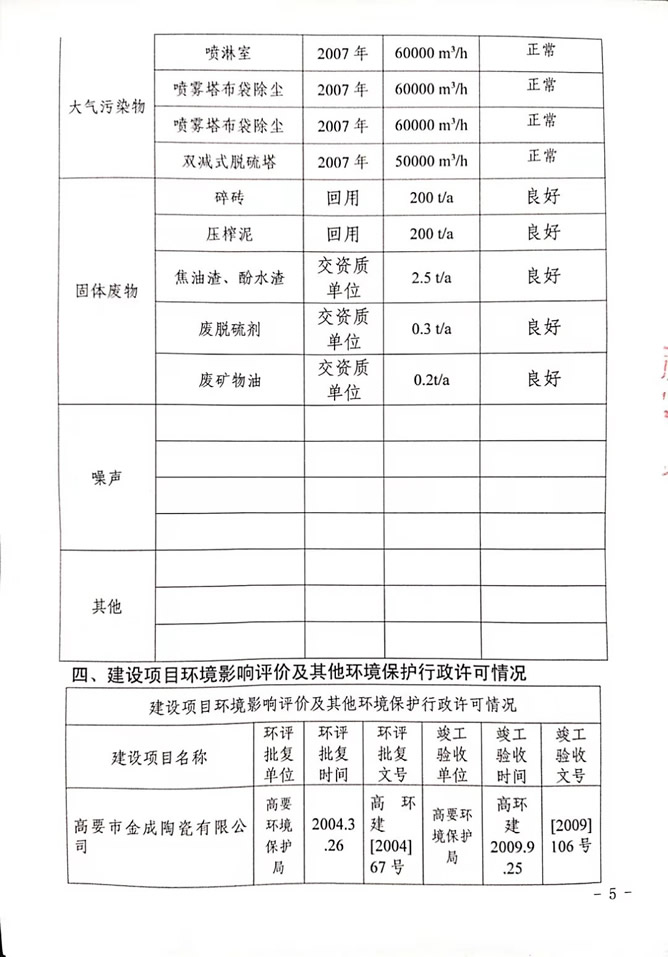 大气污染物
喷淋室 2007 年 60000 m³/h 正常
喷雾塔布袋除尘 2007 年 60000 m³/h 正常
喷雾塔布袋除尘 2007 年 60000 m³/h 正常
双减式脱硫塔 2007 年 50000 m³/h 正常
固体废物
碎砖 回用 200 t/a 良好
压榨泥 回用 200 t/a 良好
焦油渣、酚水渣 交资质单位 2.5 t/a 良好
废脱硫剂 交资质单位 0.3 t/a 良好
废矿物油 交资质单位 0.2t/a 良好
噪声
其他
四、建设项目环境影响评价及其他环境保护行政许可情况
建设项目环境影响评价及其他环境保护行政许可情况
建设项目名称
环评
批复
单位
环评
批复
时间
环评
批复
文号
竣工
验收
单位
竣工
验收
时间
竣工
验收
文号
高要市金成陶瓷有限公
司
高要
环境
保护
局
2004.3
.26
高 环
建
[2004]
67 号
高要环
境保护
局
高环
建
2009.9
.25
[2009]
106 号
- 5 -